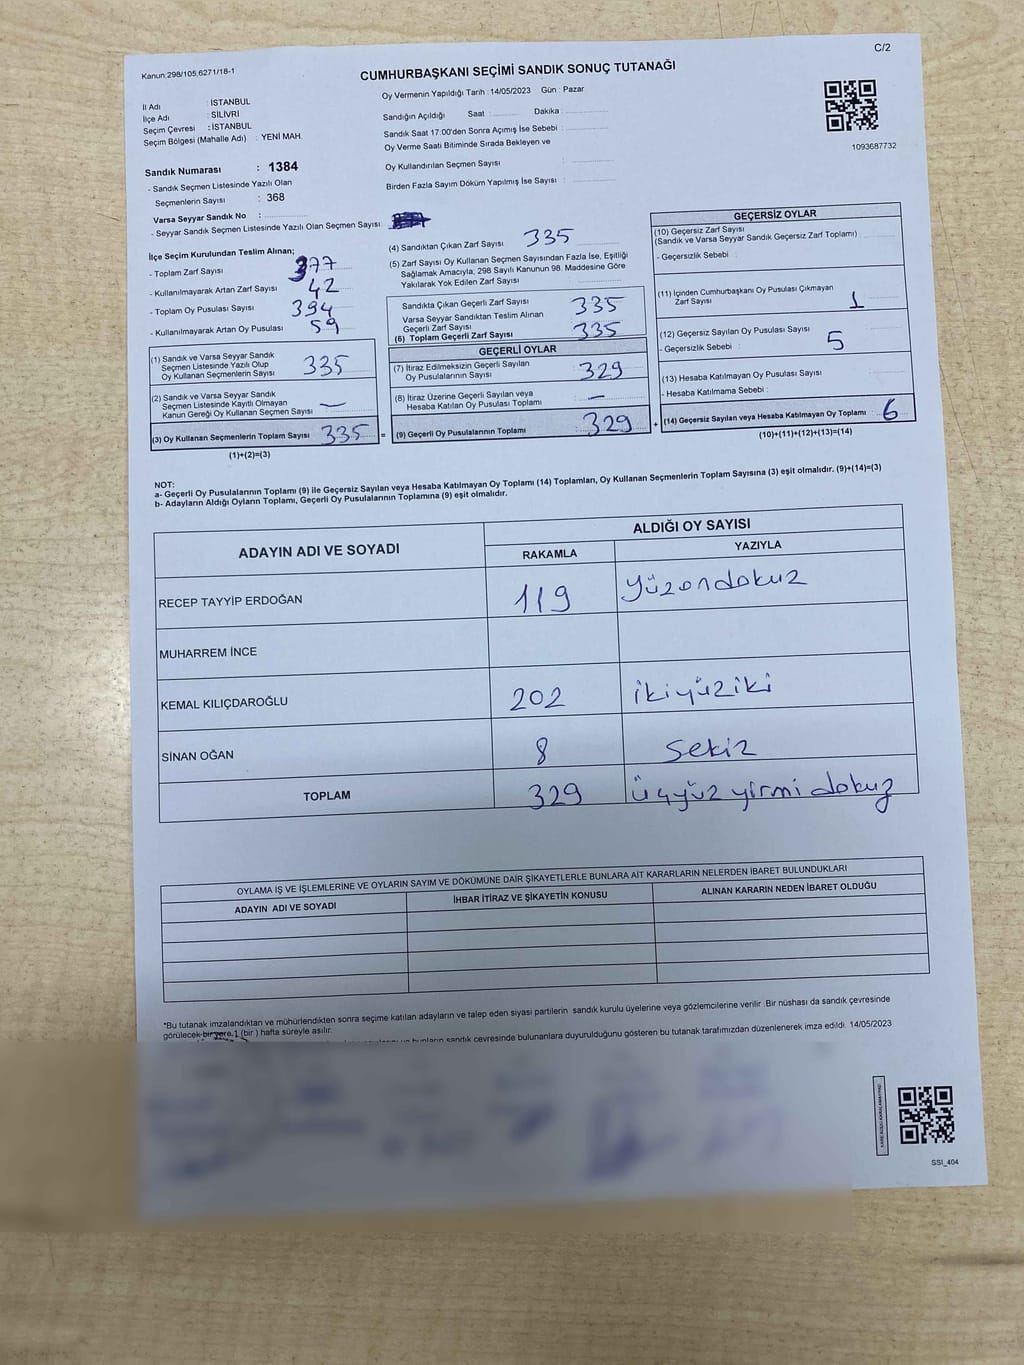 C/2
Kanun:298/105,6271/18-1
CUMHURBAŞKANI SEÇİMİ SANDIK SONUÇ TUTANAĞI
İl Adı : İSTANBUL
İlçe Adı : SİLİVRİ
Seçim Çevresi : İSTANBUL
Seçim Bölgesi (Mahalle Adı) : YENİ MAH.
Sandık Numarası : 1384
- Sandık Seçmen Listesinde Yazılı Olan
Seçmenlerin Sayısı : 368
Varsa Seyyar Sandık No :
- Seyyar Sandık Seçmen Listesinde Yazılı Olan Seçmen Sayısı
Oy Vermenin Yapıldığı Tarih : 14/05/2023 Gün : Pazar
Sandığın Açıldığı Saat : Dakika :
Sandık Saat 17:00'den Sonra Açımış İse Sebebi :
Oy Verme Saati Bitiminde Sırada Bekleyen ve
Oy Kullandırılan Seçmen Sayısı :
Birden Fazla Sayım Döküm Yapılmış İse Sayısı :
1093687732
İlçe Seçim Kurulundan Teslim Alınan;
- Toplam Zarf Sayısı 377
- Kullanılmayarak Artan Zarf Sayısı 42
- Toplam Oy Pusulası Sayısı 394
- Kullanılmayarak Artan Oy Pusulası 59
(1) Sandık ve Varsa Seyyar Sandık
Seçmen Listesinde Yazılı Olup
Oy Kullanan Seçmenlerin Sayısı 335
(2) Sandık ve Varsa Seyyar Sandık
Seçmen Listesinde Kayıtlı Olmayan
Kanun Gereği Oy Kullanan Seçmen Sayısı —
(3) Oy Kullanan Seçmenlerin Toplam Sayısı 335 =
(1)+(2)=(3)
(4) Sandıktan Çıkan Zarf Sayısı 335
(5) Zarf Sayısı Oy Kullanan Seçmen Sayısından Fazla İse, Eşitliği
Sağlamak Amacıyla; 298 Sayılı Kanunun 98. Maddesine Göre
Yakılarak Yok Edilen Zarf Sayısı :
Sandıkta Çıkan Geçerli Zarf Sayısı 335
Varsa Seyyar Sandıktan Teslim Alınan
Geçerli Zarf Sayısı
(6) Toplam Geçerli Zarf Sayısı 335
GEÇERLİ OYLAR
(7) İtiraz Edilmeksizin Geçerli Sayılan
Oy Pusulalarının Sayısı 329
(8) İtiraz Üzerine Geçerli Sayılan veya
Hesaba Katılan Oy Pusulası Toplamı —
(9) Geçerli Oy Pusulalarının Toplamı 329 +
GEÇERSİZ OYLAR
(10) Geçersiz Zarf Sayısı
(Sandık ve Varsa Seyyar Sandık Geçersiz Zarf Toplamı)
- Geçersizlik Sebebi :
(11) İçinden Cumhurbaşkanı Oy Pusulası Çıkmayan
Zarf Sayısı 1
(12) Geçersiz Sayılan Oy Pusulası Sayısı
- Geçersizlik Sebebi : 5
(13) Hesaba Katılmayan Oy Pusulası Sayısı
- Hesaba Katılmama Sebebi :
(14) Geçersiz Sayılan veya Hesaba Katılmayan Oy Toplamı 6
(10)+(11)+(12)+(13)=(14)
NOT:
a- Geçerli Oy Pusulalarının Toplamı (9) ile Geçersiz Sayılan veya Hesaba Katılmayan Oy Toplamı (14) Toplamları, Oy Kullanan Seçmenlerin Toplam Sayısına (3) eşit olmalıdır. (9)+(14)=(3)
b- Adayların Aldığı Oyların Toplamı, Geçerli Oy Pusulalarının Toplamına (9) eşit olmalıdır.
ADAYIN ADI VE SOYADI ALDIĞI OY SAYISI
RAKAMLA YAZIYLA
RECEP TAYYİP ERDOĞAN 119 Yüzondokuz
MUHARREM İNCE
KEMAL KILIÇDAROĞLU 202 ikiyüziki
SİNAN OĞAN 8 Sekiz
TOPLAM 329 Üçyüz yirmi dokuz
OYLAMA İŞ VE İŞLEMLERİNE VE OYLARIN SAYIM VE DÖKÜMÜNE DAİR ŞİKAYETLERLE BUNLARA AİT KARARLARIN NELERDEN İBARET BULUNDUKLARI
ADAYIN ADI VE SOYADI İHBAR İTİRAZ VE ŞİKAYETİN KONUSU ALINAN KARARIN NEDEN İBARET OLDUĞU
*Bu tutanak imzalandıktan ve mühürlendikten sonra seçime katılan adayların ve talep eden siyasi partilerin sandık kurulu üyelerine veya gözlemcilerine verilir .Bir nüshası da sandık çevresinde
görülecek bir yere 1 (bir ) hafta süreyle asılır.
bunların sandık çevresinde bulunanlara duyurulduğunu gösteren bu tutanak tarafımızdan düzenlenerek imza edildi. 14/05/2023
SSI_404